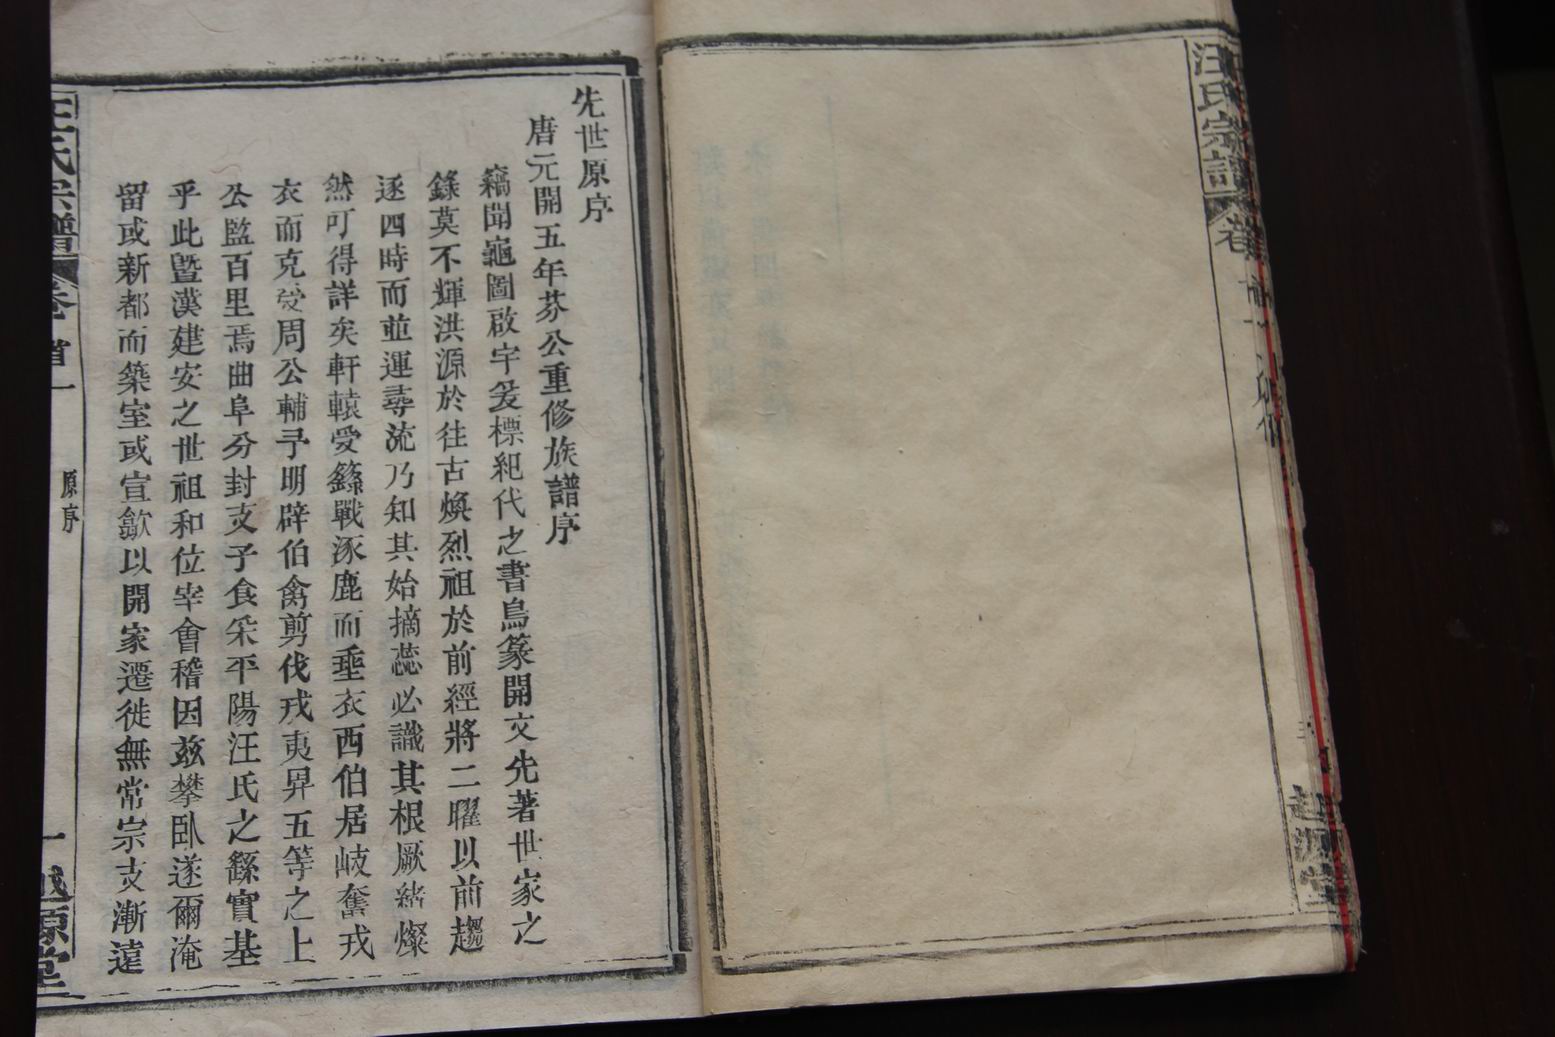 汪氏宗譜
越源堂
先世原序
唐元開五年芬公重修族譜序
竊聞龜圖啟宇爰標紀代之書鳥篆開文先著世家之
籙莫不輝洪源於往古煥烈祖於前經將二曜以前趨
逐四時而並運尋流乃知其始摘蕊必識其根厥緒燦
然可得詳矣軒轅受籙戰涿鹿而垂衣西伯居岐奮戎
衣而克受周公輔予明辟伯禽剪伐戎夷昇五等之上
公監百里焉曲阜分封支子食采平陽汪氏之繇實基
乎此曁漢建安之世祖和位宰會稽因茲攀臥遂爾淹
留或新都而築室或宣歙以開家遷徙無常宗支漸遠
汪氏宗譜
卷首一
原序
一
越源堂